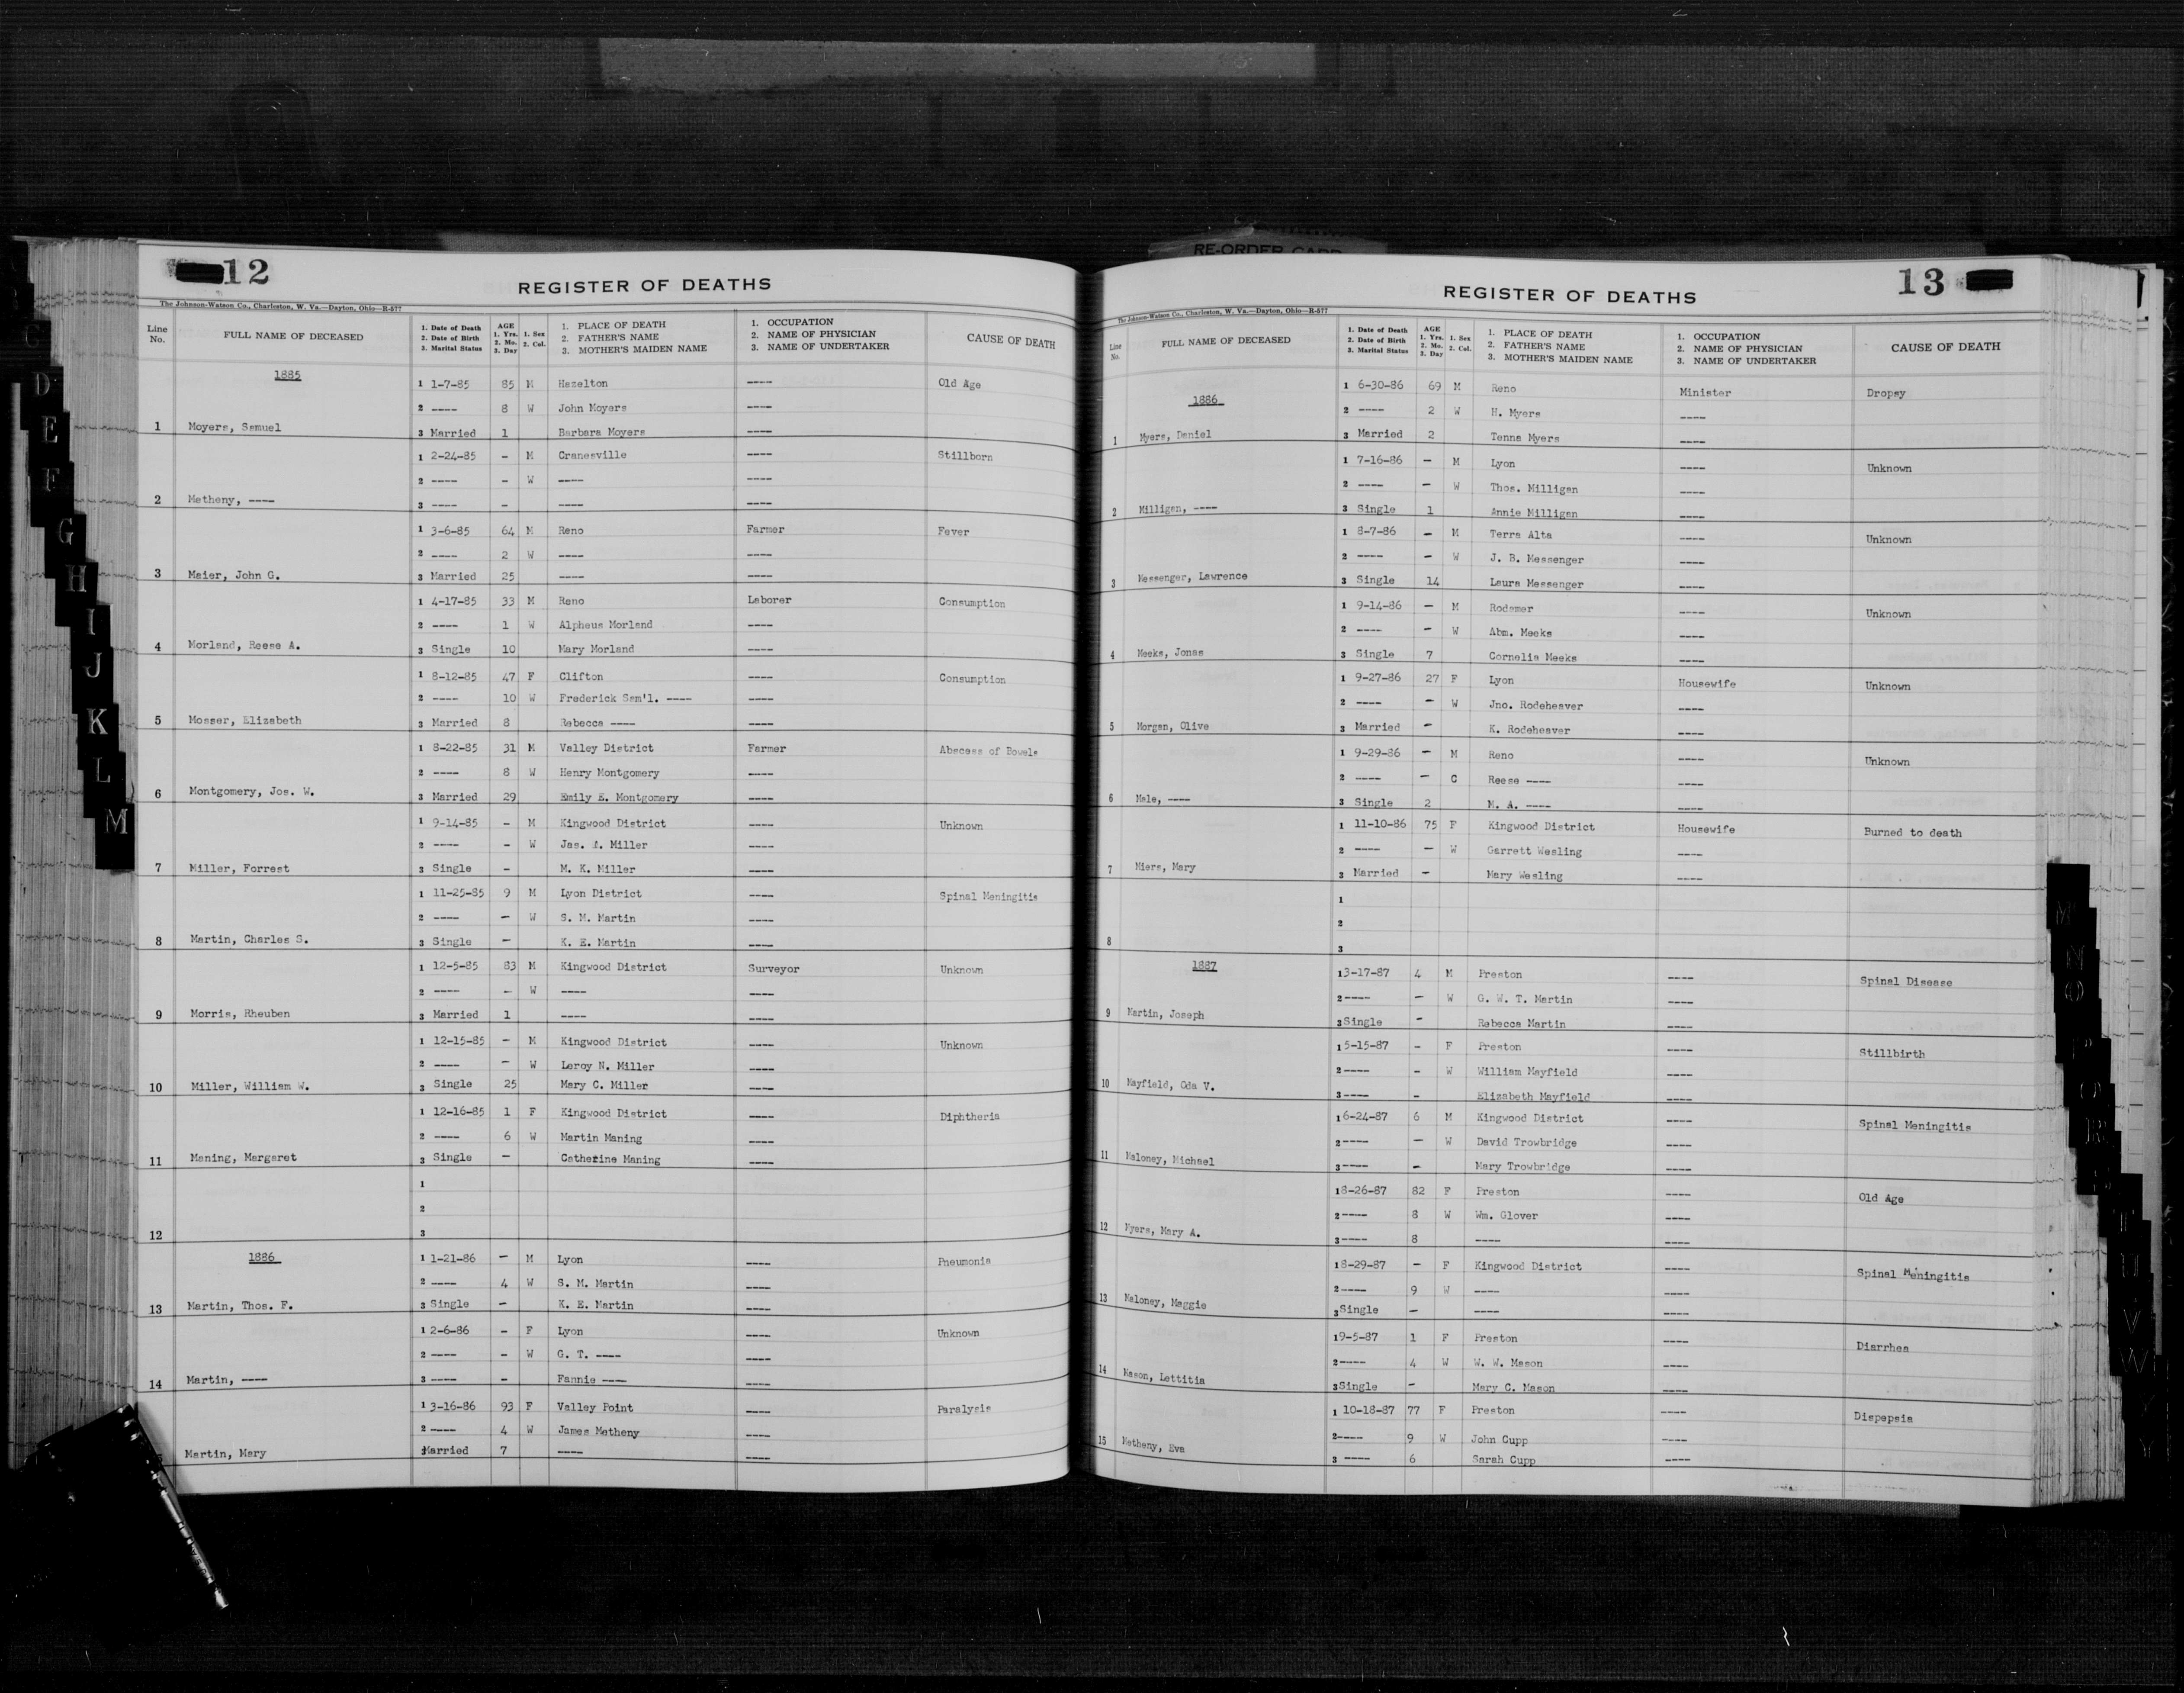 RE-ORDER CARD
12
REGISTER OF DEATHS
The Johnson-Watson Co., Charleston, W. Va.—Dayton, Ohio—R-577
Line No. FULL NAME OF DECEASED 1. Date of Death 2. Date of Birth 3. Marital Status AGE 1. Yrs. 2. Mo. 3. Day 1. Sex 2. Col. 1. PLACE OF DEATH 2. FATHER'S NAME 3. MOTHER'S MAIDEN NAME 1. OCCUPATION 2. NAME OF PHYSICIAN 3. NAME OF UNDERTAKER CAUSE OF DEATH
1885
1 1-7-85 85 M Hazelton ---- Old Age
2 ---- 8 W John Moyers ----
1 Moyers, Samuel 3 Married 1 Barbara Moyers ----
1 2-24-85 - M Cranesville ---- Stillborn
2 ---- - W ---- ----
2 Metheny, ---- 3 ---- - ---- ----
1 3-6-85 64 M Reno Farmer Fever
2 ---- 2 W ---- ----
3 Maier, John G. 3 Married 25 ---- ----
1 4-17-85 33 M Reno Laborer Consumption
2 ---- 1 W Alpheus Morland ----
4 Morland, Reese A. 3 Single 10 Mary Morland ----
1 8-12-85 47 F Clifton ---- Consumption
2 ---- 10 W Frederick Sam'l. ---- ----
5 Mosser, Elizabeth 3 Married 8 Rebecca ---- ----
1 8-22-85 31 M Valley District Farmer Abscess of Bowels
2 ---- 8 W Henry Montgomery ----
6 Montgomery, Jos. W. 3 Married 29 Emily E. Montgomery ----
1 9-14-85 - M Kingwood District ---- Unknown
2 ---- - W Jas. A. Miller ----
7 Miller, Forrest 3 Single - M. K. Miller ----
1 11-25-85 9 M Lyon District ---- Spinal Meningitis
2 ---- - W S. M. Martin ----
8 Martin, Charles S. 3 Single - K. E. Martin ----
1 12-5-85 83 M Kingwood District Surveyor Unknown
2 ---- - W ---- ----
9 Morris, Rheuben 3 Married 1 ---- ----
1 12-15-85 - M Kingwood District ---- Unknown
2 ---- - W Leroy N. Miller ----
10 Miller, William W. 3 Single 25 Mary C. Miller ----
1 12-16-85 1 F Kingwood District ---- Diphtheria
2 ---- 6 W Martin Maning ----
11 Maning, Margaret 3 Single - Catherine Maning ----
1
2
12 3
1886
1 1-21-86 - M Lyon ---- Pneumonia
2 ---- 4 W S. M. Martin ----
13 Martin, Thos. F. 3 Single - K. E. Martin ----
1 2-6-86 - F Lyon ---- Unknown
2 ---- - W G. T. ---- ----
14 Martin, ---- 3 ---- - Fannie ---- ----
1 3-16-86 93 F Valley Point ---- Paralysis
2 ---- 4 W James Metheny ----
Martin, Mary Married 7 ---- ----
13
REGISTER OF DEATHS
The Johnson-Watson Co., Charleston, W. Va.—Dayton, Ohio—R-577
Line No. FULL NAME OF DECEASED 1. Date of Death 2. Date of Birth 3. Marital Status AGE 1. Yrs. 2. Mo. 3. Day 1. Sex 2. Col. 1. PLACE OF DEATH 2. FATHER'S NAME 3. MOTHER'S MAIDEN NAME 1. OCCUPATION 2. NAME OF PHYSICIAN 3. NAME OF UNDERTAKER CAUSE OF DEATH
1 6-30-86 69 M Reno Minister Dropsy
1886 2 ---- 2 W H. Myers ----
1 Myers, Daniel 3 Married 2 Tenna Myers ----
1 7-16-86 - M Lyon ---- Unknown
2 ---- - W Thos. Milligan ----
2 Milligan, ---- 3 Single 1 Annie Milligan ----
1 8-7-86 - M Terra Alta ---- Unknown
2 ---- - W J. B. Messenger ----
3 Messenger, Lawrence 3 Single 14 Laura Messenger ----
1 9-14-86 - M Rodamer ---- Unknown
2 ---- - W Abm. Meeks ----
4 Meeks, Jonas 3 Single 7 Cornelia Meeks ----
1 9-27-86 27 F Lyon Housewife Unknown
2 ---- - W Jno. Rodeheaver ----
5 Morgan, Olive 3 Married - K. Rodeheaver ----
1 9-29-86 - M Reno ---- Unknown
2 ---- - C Reese ---- ----
6 Male, ---- 3 Single 2 M. A. ---- ----
1 11-10-86 75 F Kingwood District Housewife Burned to death
2 ---- - W Garrett Wesling ----
7 Miers, Mary 3 Married - Mary Wesling ----
1
2
8 3
1887
1 3-17-87 4 M Preston ---- Spinal Disease
2 ---- - W G. W. T. Martin ----
9 Martin, Joseph 3 Single - Rebecca Martin ----
1 5-15-87 - F Preston ---- Stillbirth
2 ---- - W William Mayfield ----
10 Mayfield, Oda V. 3 ---- - Elizabeth Mayfield ----
1 6-24-87 6 M Kingwood District ---- Spinal Meningitis
2 ---- - W David Trowbridge ----
11 Maloney, Michael 3 ---- - Mary Trowbridge ----
1 8-26-87 82 F Preston ---- Old Age
2 ---- 8 W Wm. Glover ----
12 Myers, Mary A. 3 ---- 8 ---- ----
1 8-29-87 - F Kingwood District ---- Spinal Meningitis
2 ---- 9 W ---- ----
13 Maloney, Maggie 3 Single - ---- ----
1 9-5-87 1 F Preston ---- Diarrhea
2 ---- 4 W W. W. Mason ----
14 Mason, Lettitia 3 Single - Mary C. Mason ----
1 10-18-87 77 F Preston ---- Dispepsia
2 ---- 9 W John Cupp ----
15 Metheny, Eva 3 ---- 6 Sarah Cupp ----
C
D
E
F
G
H
I
J
K
L
M